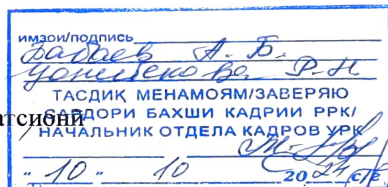 имзои/подпись
Бабаев А. Б.
Р-Н
ТАСДИҚ МЕНАМОЯМ/ЗАВЕРЯЮ
САРДОРИ БАХШИ КАДРИИ РРК/
атсионӣ
НАЧАЛЬНИК ОТДЕЛА КАДРОВ УРК
"10" 10 2024 с/г